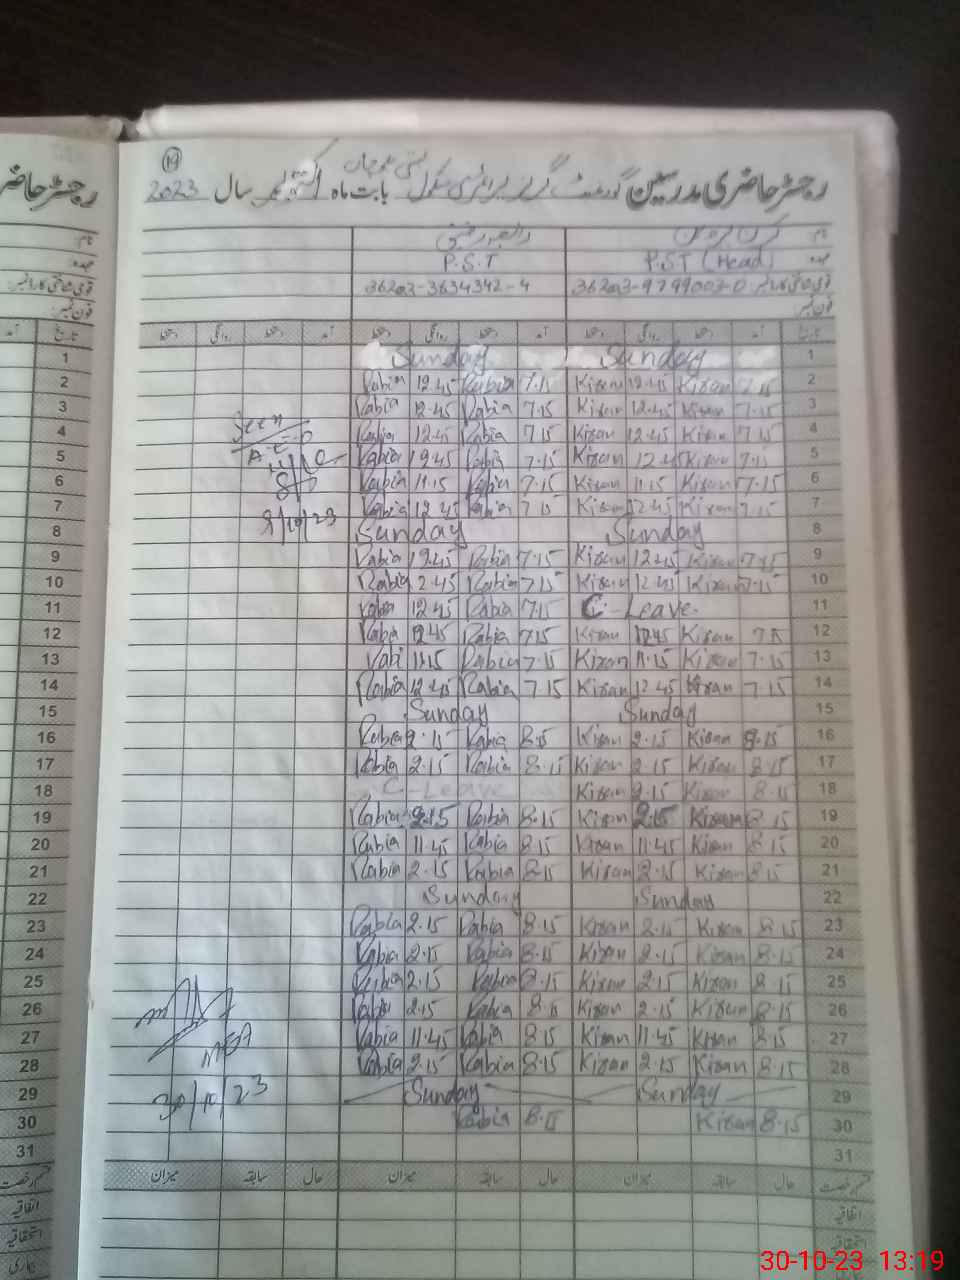 19
رجسٹر حاضری مدرسین گورنمنٹ گرلز پرائمری سکول بستی بابت ماہ اکتوبر سال 2023
نام:
عہدہ: P.ST (Head) P.S.T
قومی شناختی کارڈ نمبر: 36203-9799003-0 36203-3634342-4
فون نمبر:
تاریخ آمد دستخط روانگی دستخط آمد دستخط روانگی دستخط آمد دستخط روانگی دستخط
Sunday Sunday 1
Rabia 12.45 Rabia 7.15 Kiran 12.45 Kiran 7.15 2
Rabia 12.45 Rabia 7.15 Kiran 12.45 Kiran 7.15 3
Seen Rabia 12.45 Rabia 7.15 Kiran 12.45 Kiran 7.15 4
A.E.O Rabia 12.45 Rabia 7.15 Kiran 12.45 Kiran 7.15 5
Rabia 11.15 Rabia 7.15 Kiran 11.15 Kiran 7.15 6
Rabia 12.45 Rabia 7.15 Kiran 12.45 Kiran 7.15 7
9/10/23 Sunday Sunday 8
Rabia 12.45 Rabia 7.15 Kiran 12.45 Kiran 7.15 9
Rabia 12.45 Rabia 7.15 Kiran 12.45 Kiran 7.15 10
Rabia 12.45 Rabia 7.15 C-Leave. 11
Rabia 12.45 Rabia 7.15 Kiran 12.45 Kiran 7.15 12
Rabi 11.15 Rabia 7.15 Kiran 11.15 Kiran 7.15 13
Rabia 12.45 Rabia 7.15 Kiran 12.45 Kiran 7.15 14
Sunday Sunday 15
Rabia 2.15 Rabia 8.15 Kiran 2.15 Kiran 8.15 16
Rabia 2.15 Rabia 8.15 Kiran 2.15 Kiran 8.15 17
C-Leave Kiran 2.15 Kiran 8.15 18
Rabia 2.15 Rabia 8.15 Kiran 2.15 Kiran 8.15 19
Rabia 11.45 Rabia 8.15 Kiran 11.45 Kiran 8.15 20
Rabia 2.15 Rabia 8.15 Kiran 2.15 Kiran 8.15 21
Sunday Sunday 22
Rabia 2.15 Rabia 8.15 Kiran 2.15 Kiran 8.15 23
Rabia 2.15 Rabia 8.15 Kiran 2.15 Kiran 8.15 24
Rabia 2.15 Rabia 8.15 Kiran 2.15 Kiran 8.15 25
Rabia 2.15 Rabia 8.15 Kiran 2.15 Kiran 8.15 26
Rabia 11.45 Rabia 8.15 Kiran 11.45 Kiran 8.15 27
MEA Rabia 2.15 Rabia 8.15 Kiran 2.15 Kiran 8.15 28
30/10/23 Sunday Sunday 29
Rabia 8.15 Kiran 8.15 30
31
قسم رخصت حال سابقہ میزان حال سابقہ میزان حال سابقہ میزان
اتفاقیہ
استحقاقیہ
بیماری
رجسٹر حاضر
نام:
عہدہ:
قومی شناختی کارڈ نمبر:
فون نمبر:
تاریخ آمد
1
2
3
4
5
6
7
8
9
10
11
12
13
14
15
16
17
18
19
20
21
22
23
24
25
26
27
28
29
30
31
قسم رخصت
اتفاقیہ
استحقاقیہ
بیماری
30-10-23 13:19